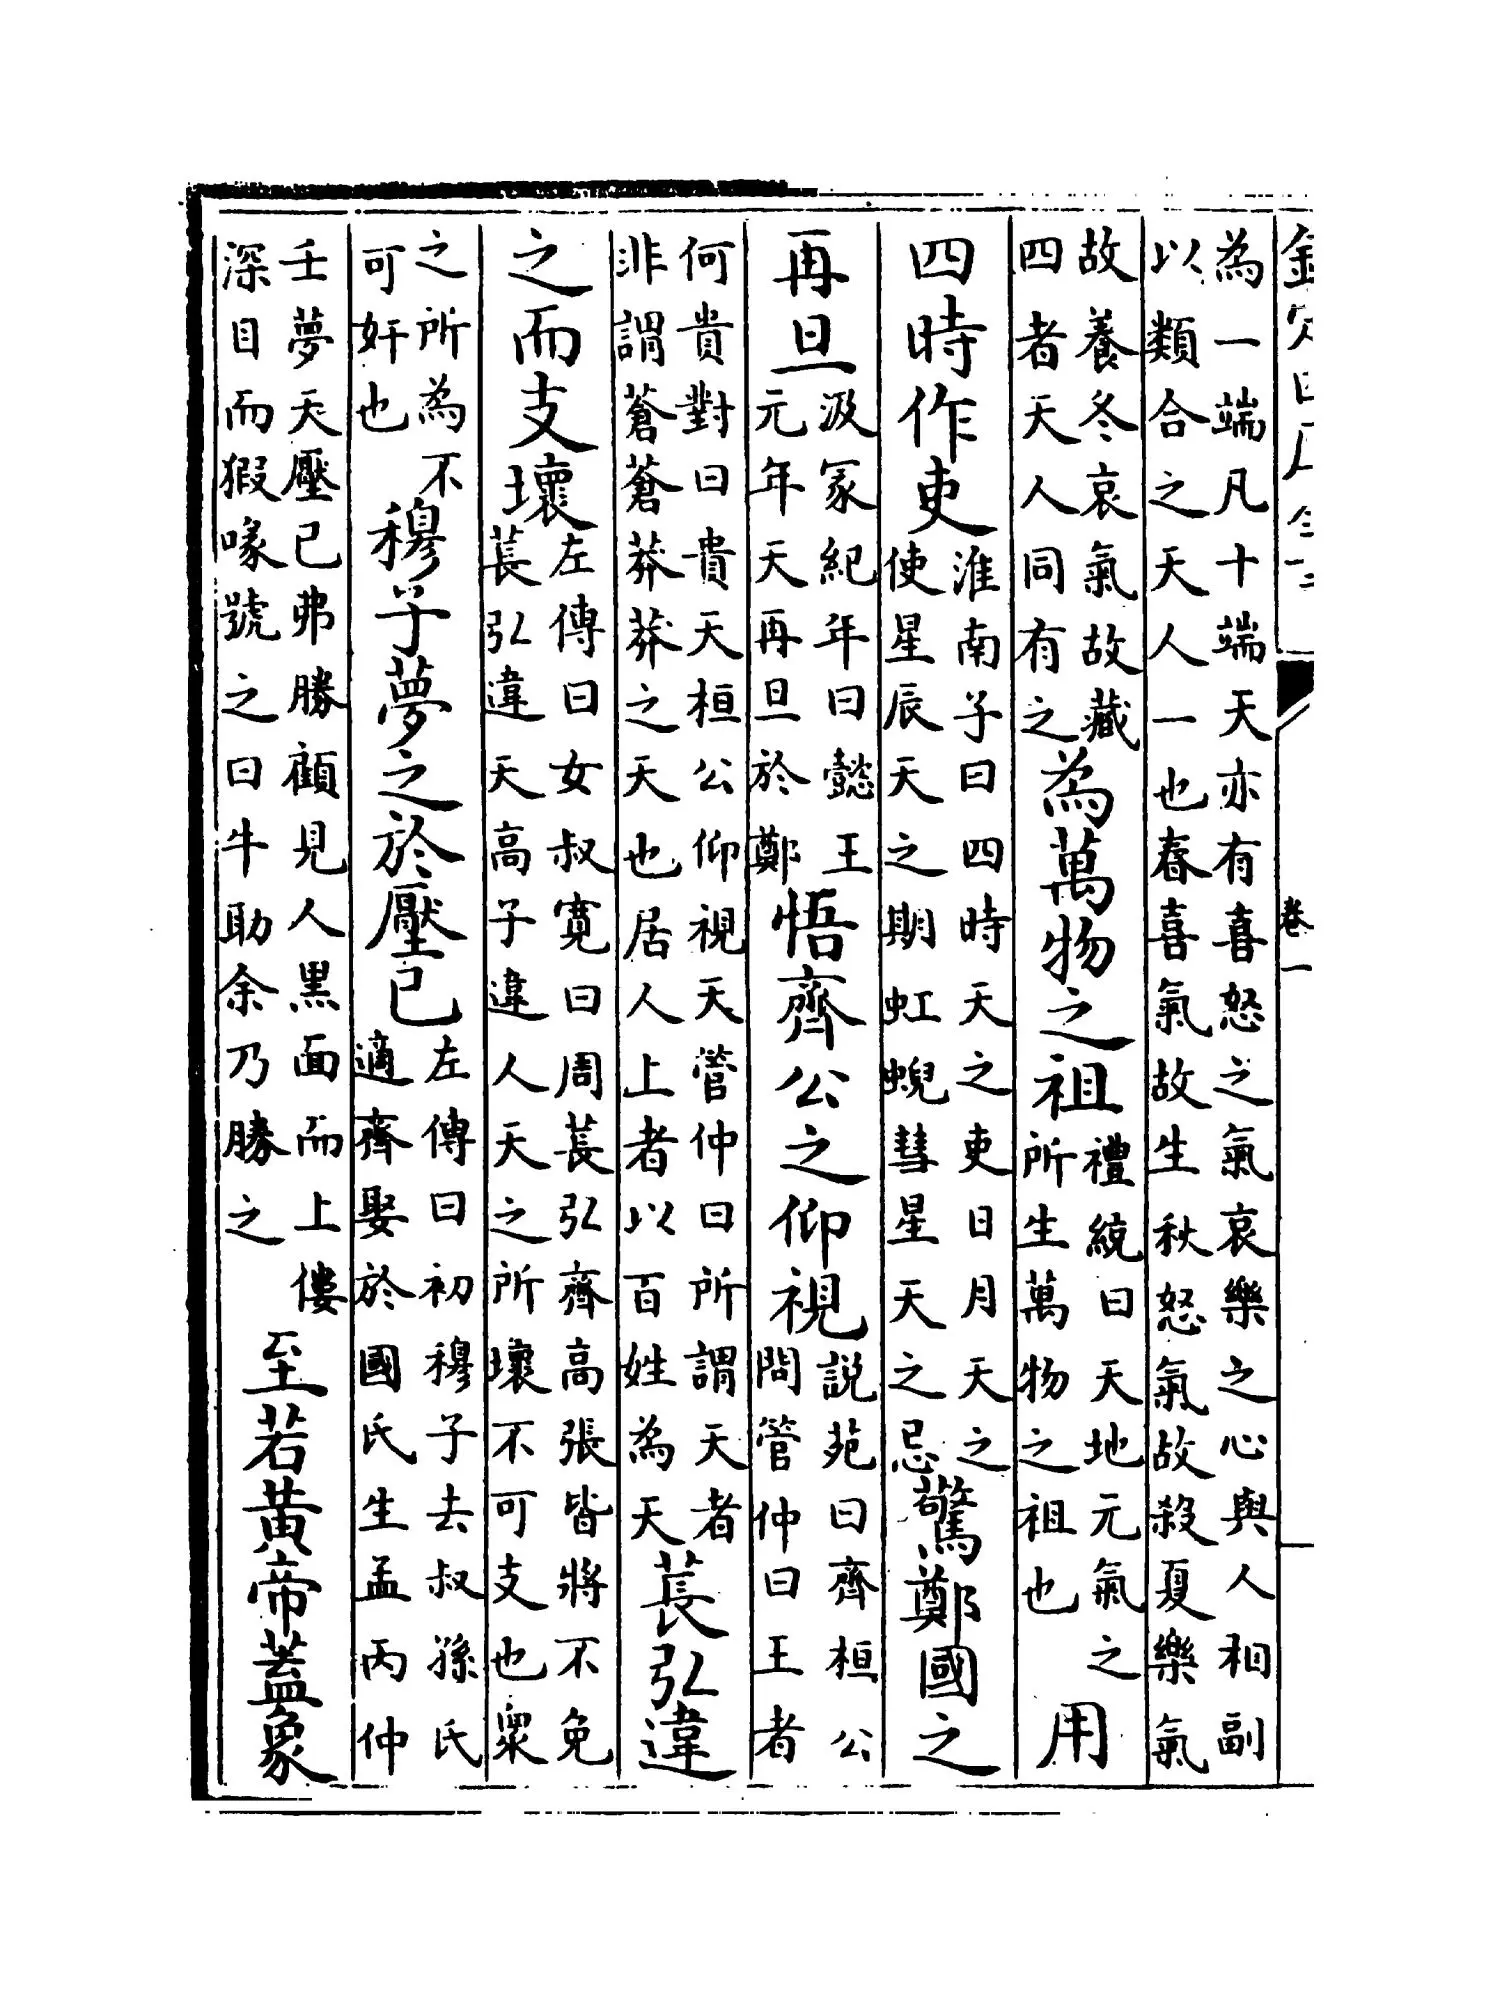 欽定四庫全書
卷一
為一端凡十端天亦有喜怒之氣哀樂之心與人相副
以類合之天人一也春喜氣故生秋怒氣故殺夏樂氣
故養冬哀氣故藏
四者天人同有之
為萬物之祖
禮統曰天地元氣之
所生萬物之祖也
用
四時作吏
淮南子曰四時天之吏日月天之
使星辰天之期虹蜺彗星天之忌
驚鄭國之
再旦
汲冢紀年曰懿王
元年天再旦於鄭
悟齊公之仰視
説苑曰齊桓公
問管仲曰王者
何貴對曰貴天桓公仰視天管仲曰所謂天者
非謂蒼蒼莽莽之天也居人上者以百姓為天
萇弘違
之而支壞
左傳曰女叔寛曰周萇弘齊高張皆將不免
萇弘違天高子違人天之所壞不可支也衆
之所為不
可奸也
穆子夢之於壓已
左傳曰初穆子去叔孫氏
適齊娶於國氏生孟丙仲
壬夢天壓已弗勝顧見人黑面而上僂
深目而猳喙號之曰牛助余乃勝之
至若黄帝蓋象